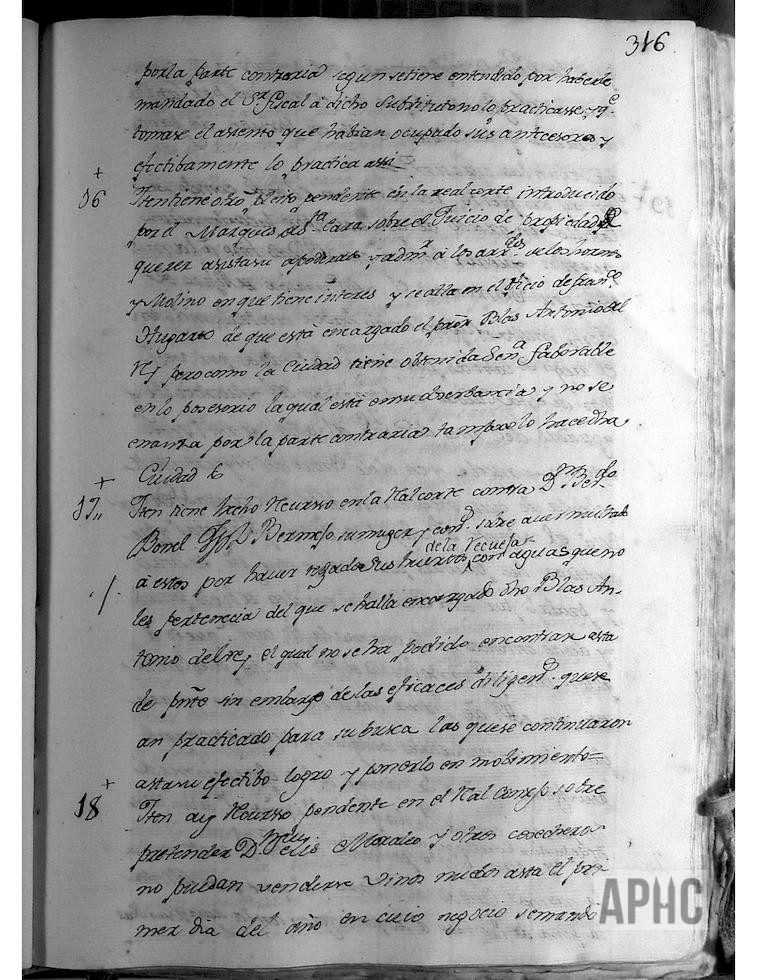 316
por la parte contraria segun se tiene entendido por haberle
mandado el Sr. Fiscal á dicho Substituto no lo practicasse, y qe.
tomase el asiento que habian ocupado sus antecesores y
efectibamente lo practica assi
+
16 Iten tiene otro Pleito pendente en la real corte introducido
por el Marques de Sta. Cara sobre el Juicio de Propiedad
querer asista su apoderado y admr. á los arr.dos de los hornos
y Molino en que tiene interes y se alla en el oficio de Franco.
Hugarte de que está encargado el Pror. Blas Antonio del
Rey pero como la Ciudad tiene obtenida Sena. faborable
en lo posesorio la qual está en su obserbancia y no se
enanta por la parte contraria tampoco lo hace dha
Ciudad
+
17,, Iten tiene hecho Recursso en la Rl. corte contra Dn. Berdo.
Bonel Bermejo su muger y con. sobre aver multado
de la Recueja
./. á estos por haver regado sus huertos, con aguas que no
les pertenecia del que se halla encargado dho Blas An-
tonio del Rey, el qual no se ha podido encontrar asta
de pnte sin embargo de las eficaces diligen. que se
an practicado para su busca las que se continuaron
asta su efectibo logro y ponerlo en mobimiento=
+
18 Iten ay Recursso pendente en el Rl. Consejo sobre
pretender Dn. Felis Morales y otros cosecheros
no puedan venderse Vinos nuebos asta el pri-
mer dia del año en cuio negocio se mandó
APHC